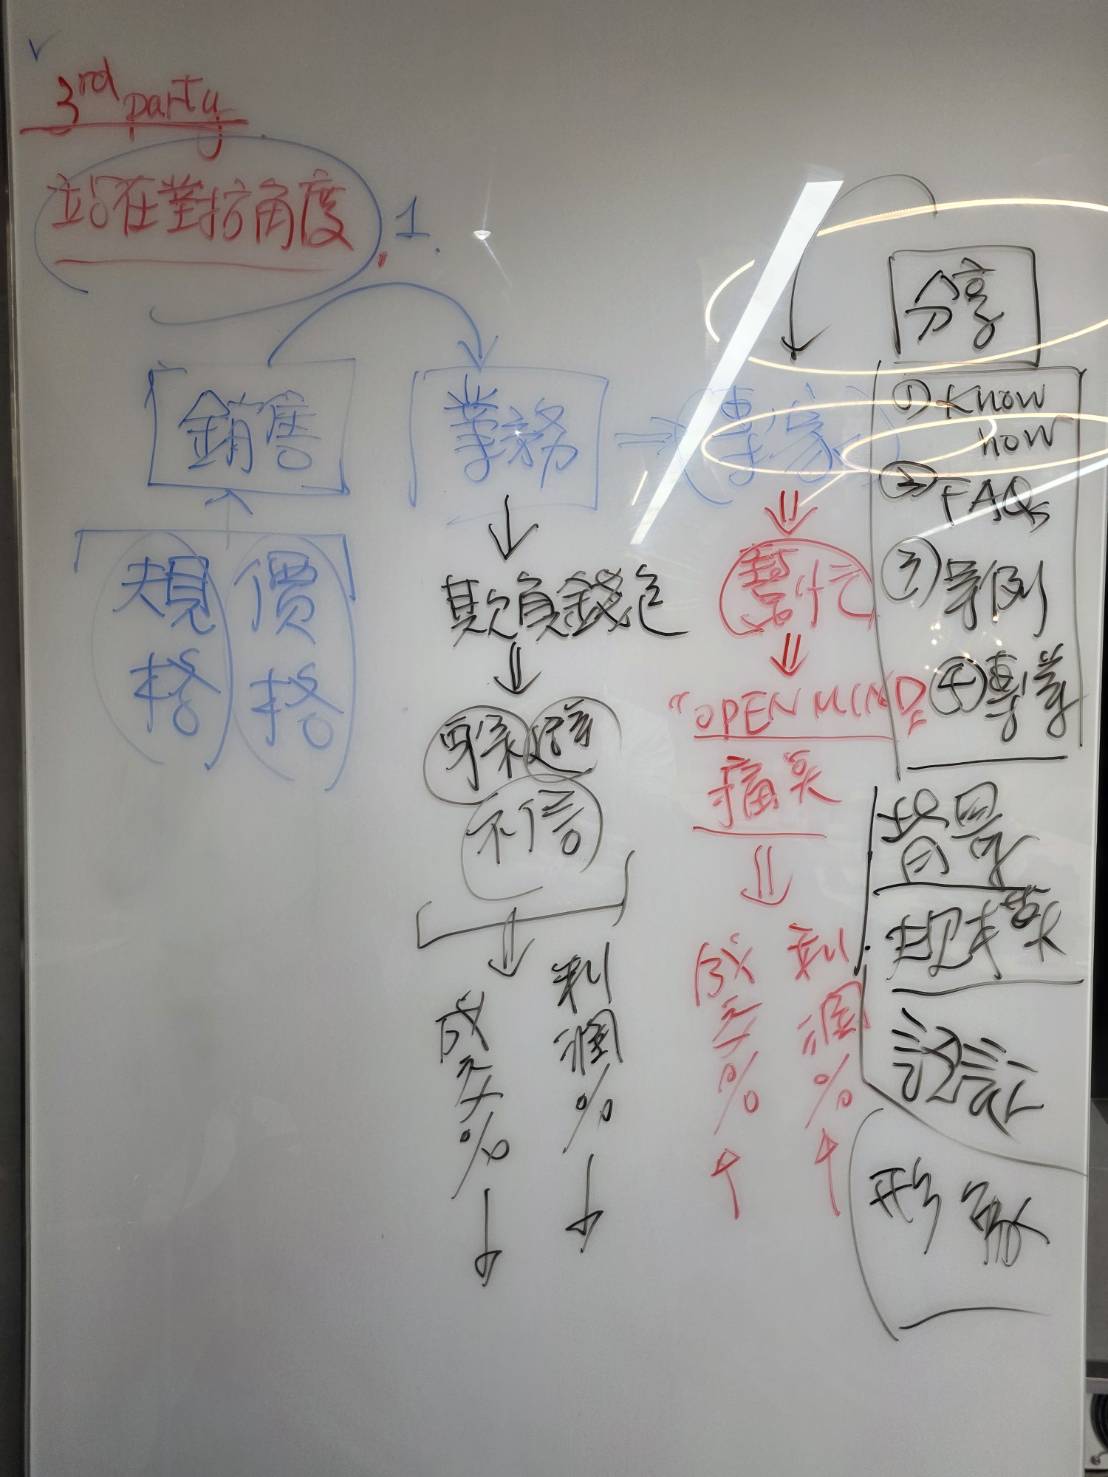 3rd party
站在對抗角度.
1.
銷售
業務
⇒ 專家
規格
價格
欺負錢包
躲避
不信
成交% ↓
利潤% ↓
幫忙
"OPEN MIND"
痛笑
成交% ↑
利潤% ↑
分享
① Know how
② FAQs
③ 案例
④ 專業
背景
規模
認証
形象